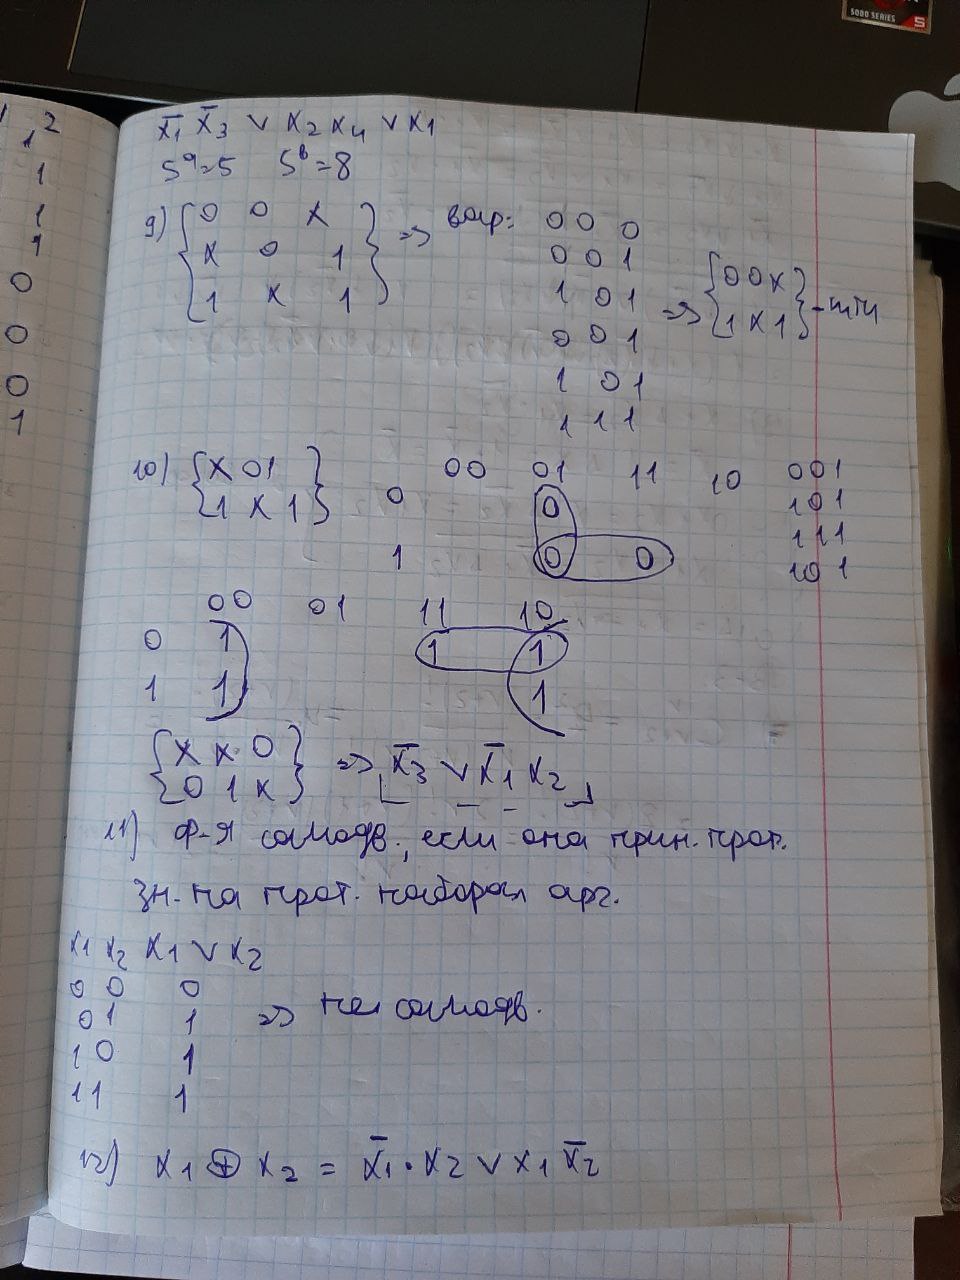 5000 SERIES 5
2
1
1
1
1
0
0
0
1
x̄1 x̄3 ∨ x2 x4 ∨ x1
Sᵃ=5 Sᵇ=8
9) {0 0 x
x 0 1
1 x 1} => 
0 0 0
0 0 1
1 0 1
0 0 1
1 0 1
1 1 1
=> {0 0 x
1 x 1} -
10) {x 0 1
1 x 1}
00 01 11 10
0 0
1 0 0
001
101
111
101
00 01 11 10
0 1 1 1
1 1 1
{x x 0
0 1 x} => x̄3 ∨ x̄1 x2
11) ф-я самодв., если она прин. прот.
зн. на прот. наборах арг.
x1 x2 x1 ∨ x2
0 0 0
0 1 1 => не самодв.
1 0 1
1 1 1
12) x1 ⊕ x2 = x̄1 · x2 ∨ x1 x̄2